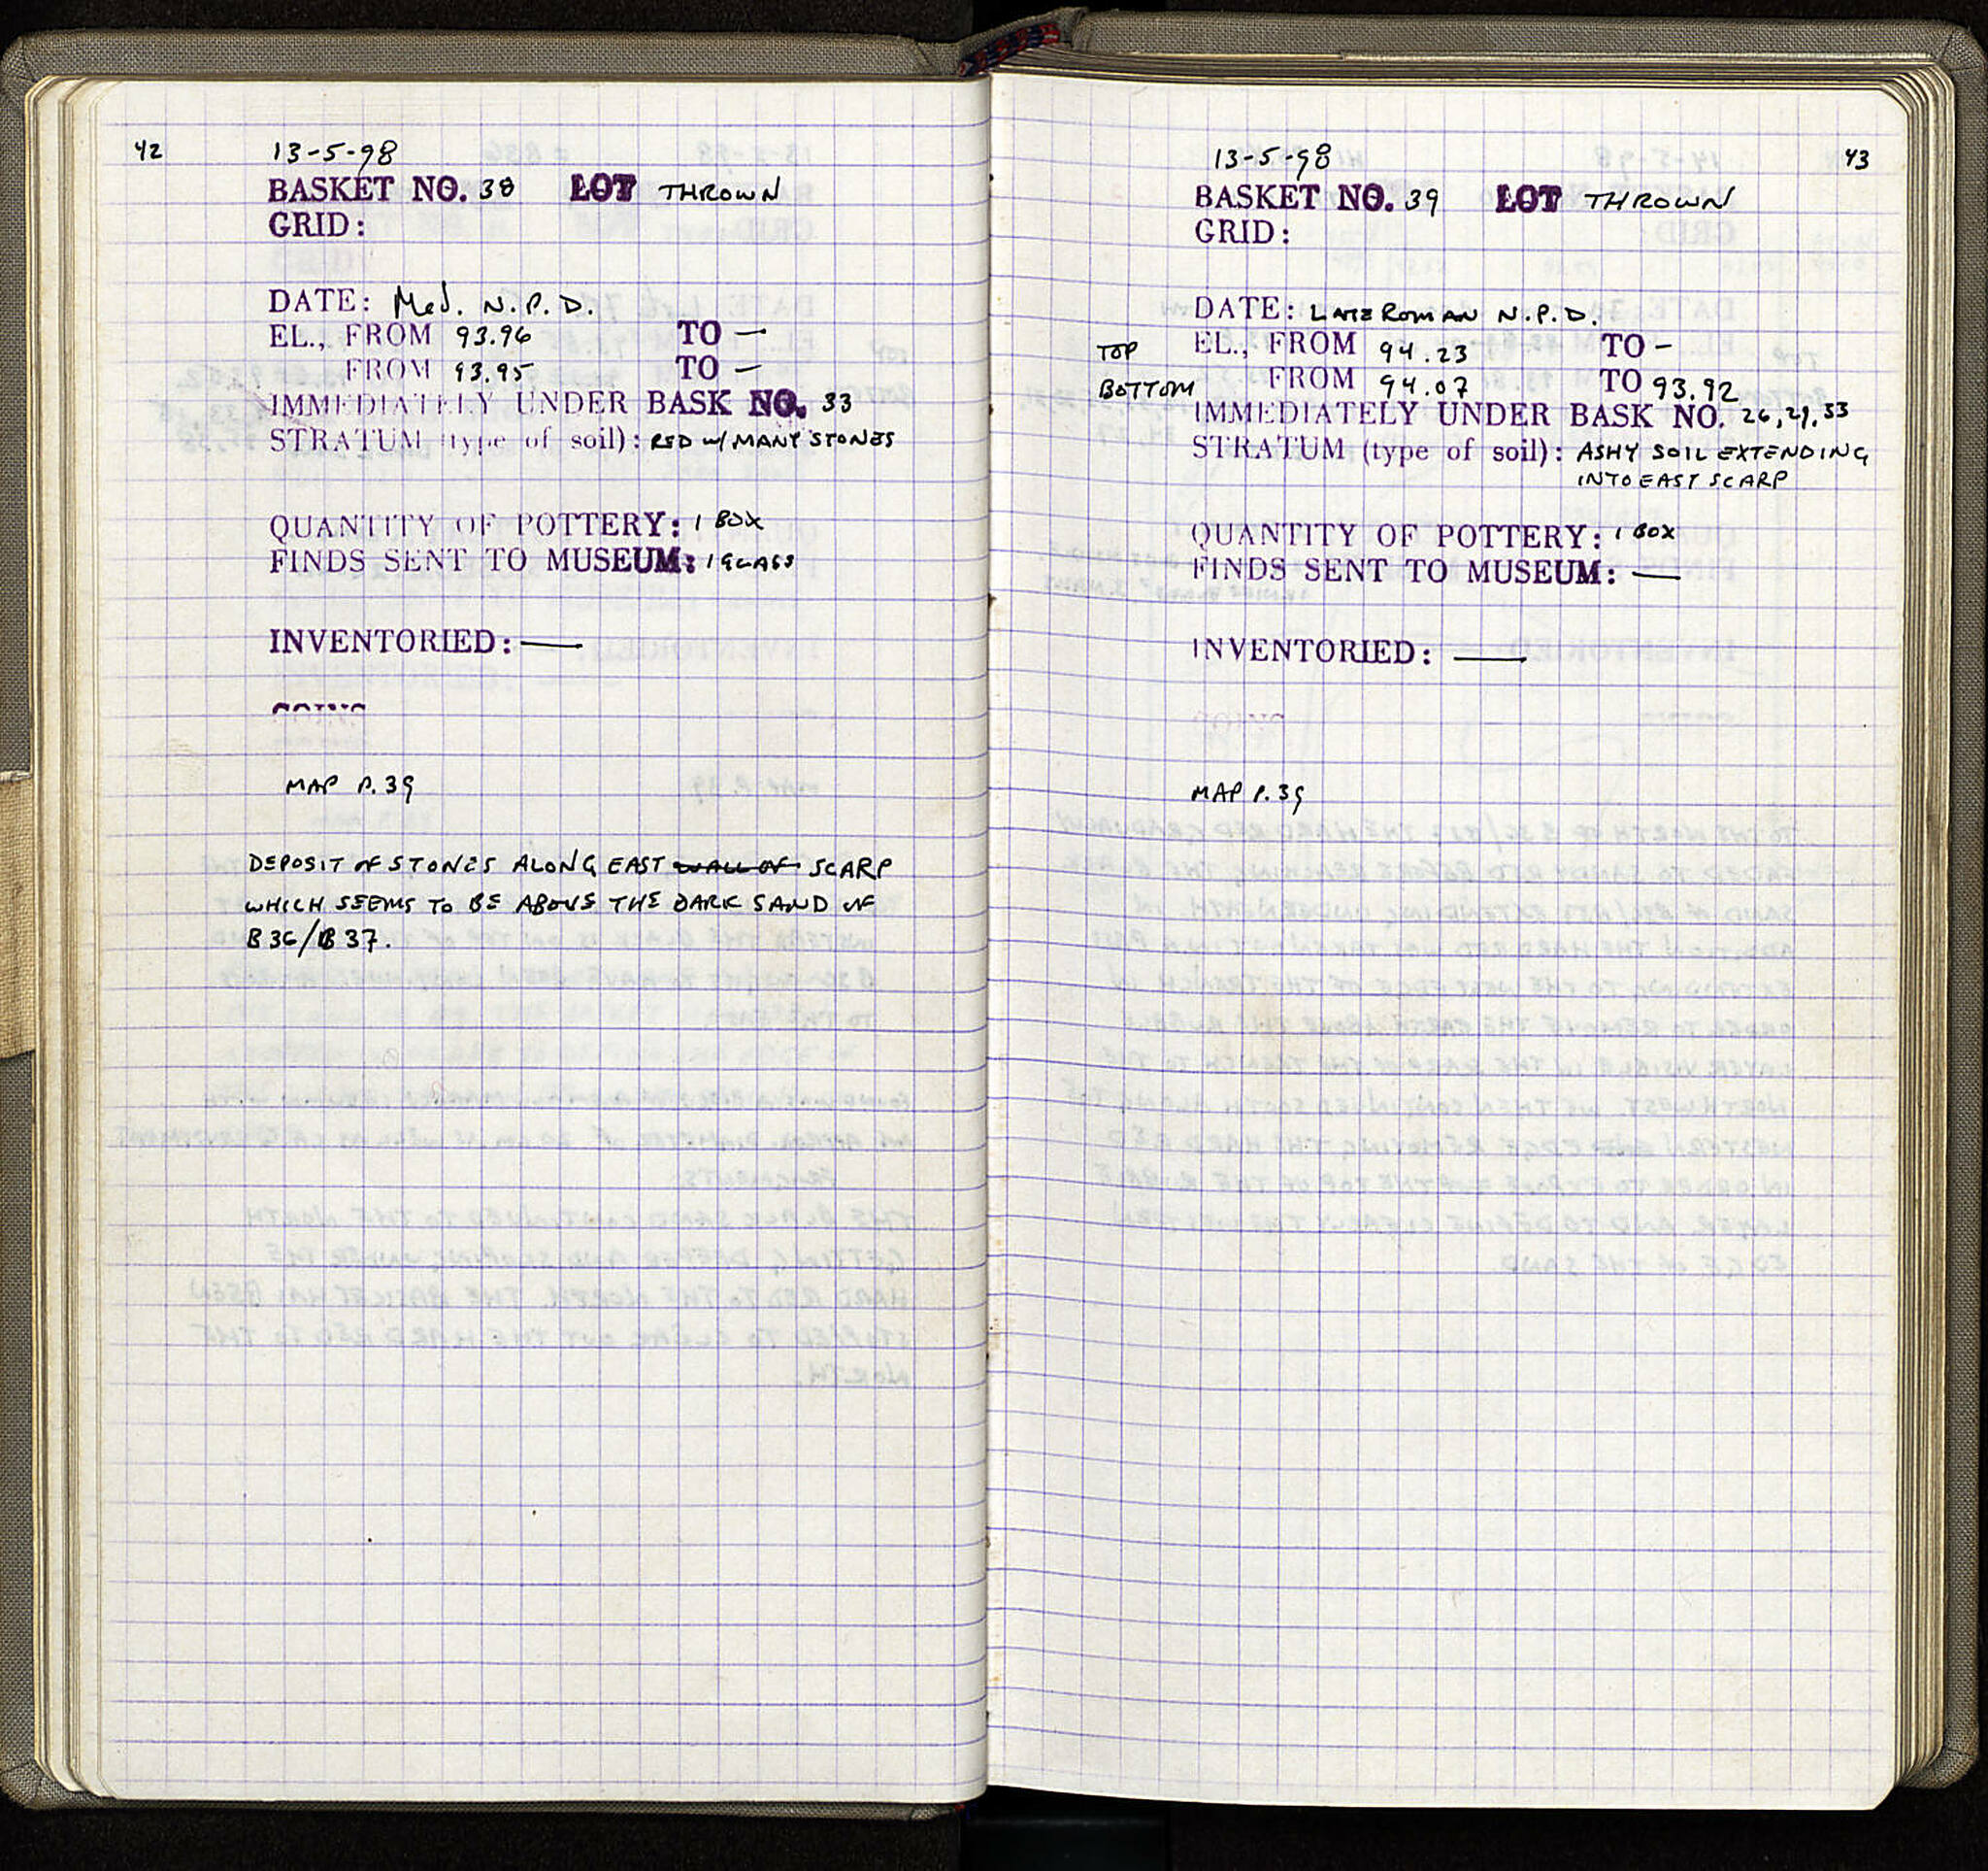 42
13-5-98
BASKET NO. 38 LOT THROWN
GRID:
DATE: Med. N.P.D.
EL., FROM 93.96 TO —
FROM 93.95 TO —
IMMEDIATELY UNDER BASK NO. 33
STRATUM (type of soil): RED W/ MANY STONES
QUANTITY OF POTTERY: 1 BOX
FINDS SENT TO MUSEUM: 1 GLASS
INVENTORIED: —
MAP P. 39
DEPOSIT OF STONES ALONG EAST WALL OF SCARP
WHICH SEEMS TO BE ABOVE THE DARK SAND OF
B36/B37.
43
13-5-98
BASKET NO. 39 LOT THROWN
GRID:
DATE: LATE ROMAN N.P.D.
TOP EL., FROM 94.23 TO -
BOTTOM FROM 94.07 TO 93.92
IMMEDIATELY UNDER BASK NO. 26, 29, 33
STRATUM (type of soil): ASHY SOIL EXTENDING
INTO EAST SCARP
QUANTITY OF POTTERY: 1 BOX
FINDS SENT TO MUSEUM: —
INVENTORIED: —
COINS
MAP P. 39